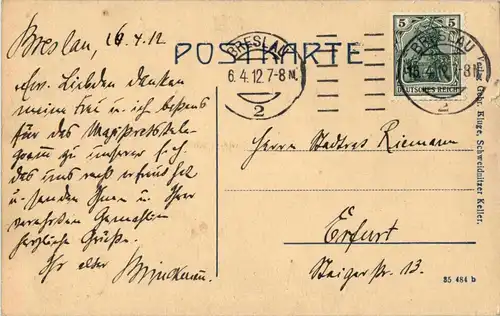 Breslau, 6.4.12
POSTKARTE
BRESLAU
6.4.12.7-8 N.
2
5 5
DEUTSCHES REICH
BRESLAU
6.4.12.7-8 N.
2
Lieben danken
meine Frau u. ich bestens
für das
zu unserer
das uns recht erfreut hat
u. senden Ihnen u. Ihrer
verehrten Gemahlin
herzliche Grüße.
Ihr alter Brinckmann.
Herrn Stadtrat Riemann
Erfurt
Steigerstr. 13.
Verlag Gebr. Kluge, Schweidnitzer Keller.
85 484 b